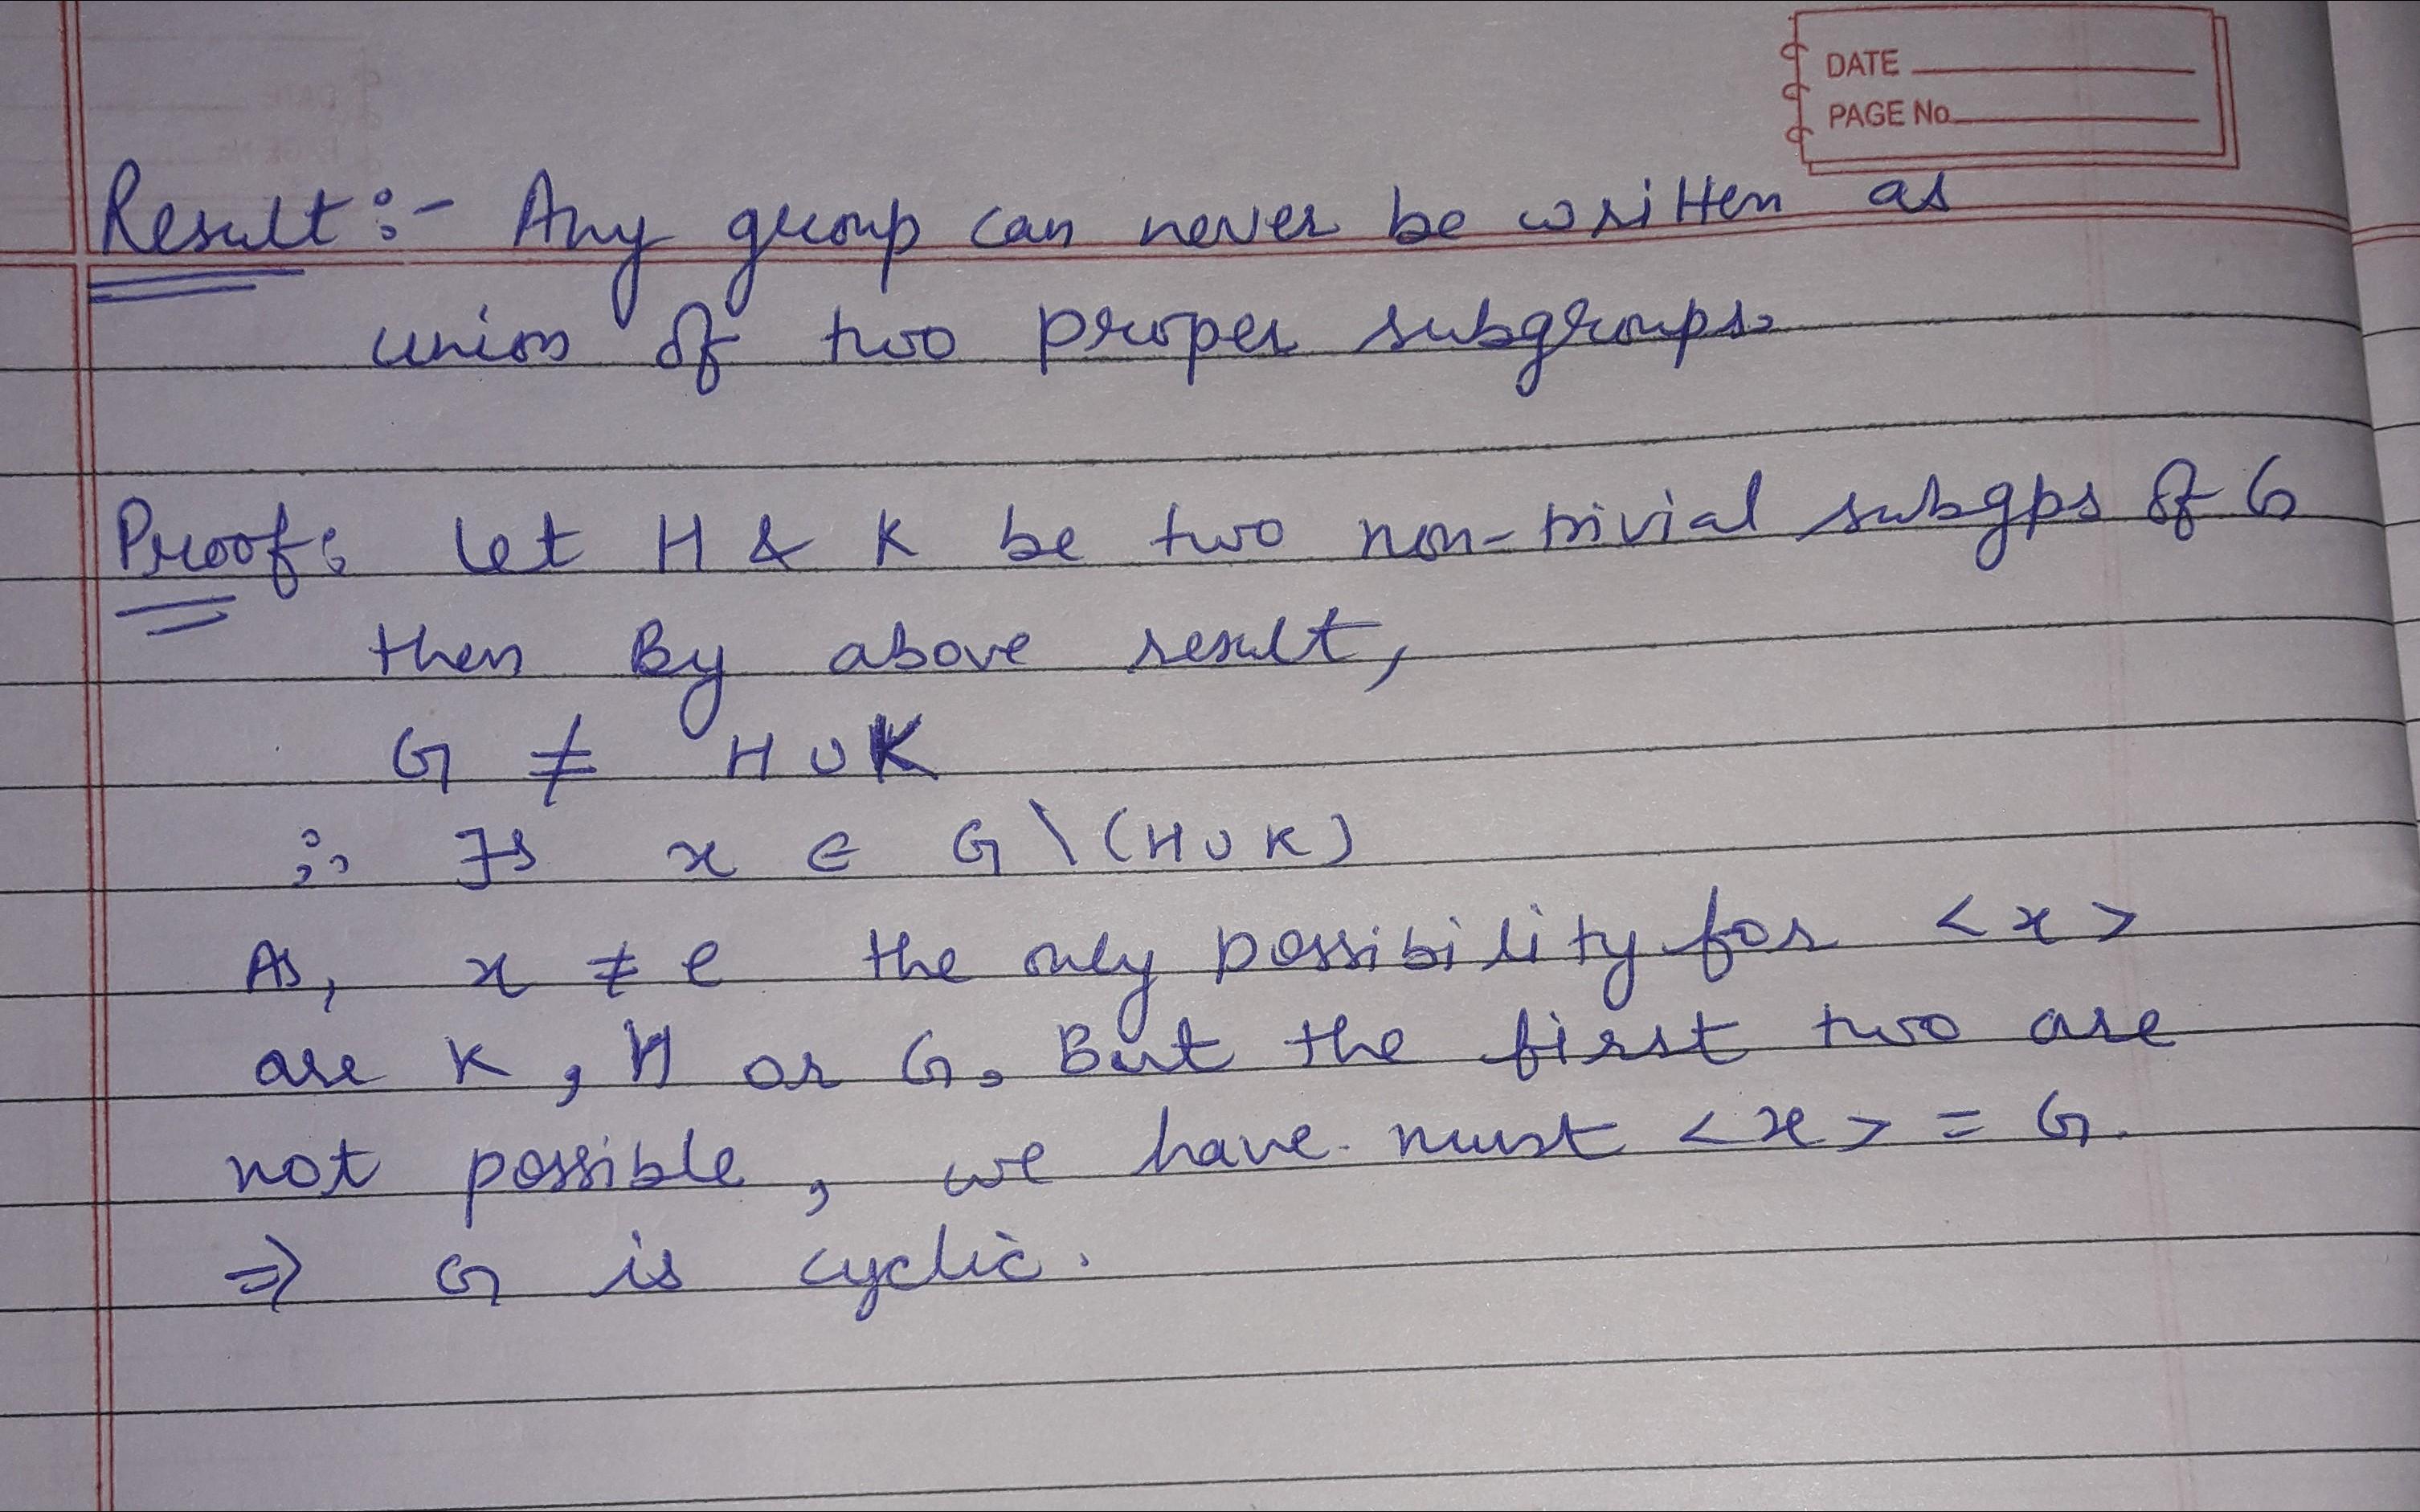 DATE
PAGE No
Result:- Any group can never be written as
union of two proper subgroups.
Proof: let H & K be two non-trivial subgps of G
then By above result,
G ≠ H ∪ K
∴ ∃s x ∈ G \ (H ∪ K)
As, x ≠ e the only possibility for <x>
are K, H or G. But the first two are
not possible, we have must <x> = G.
⇒ G is cyclic.